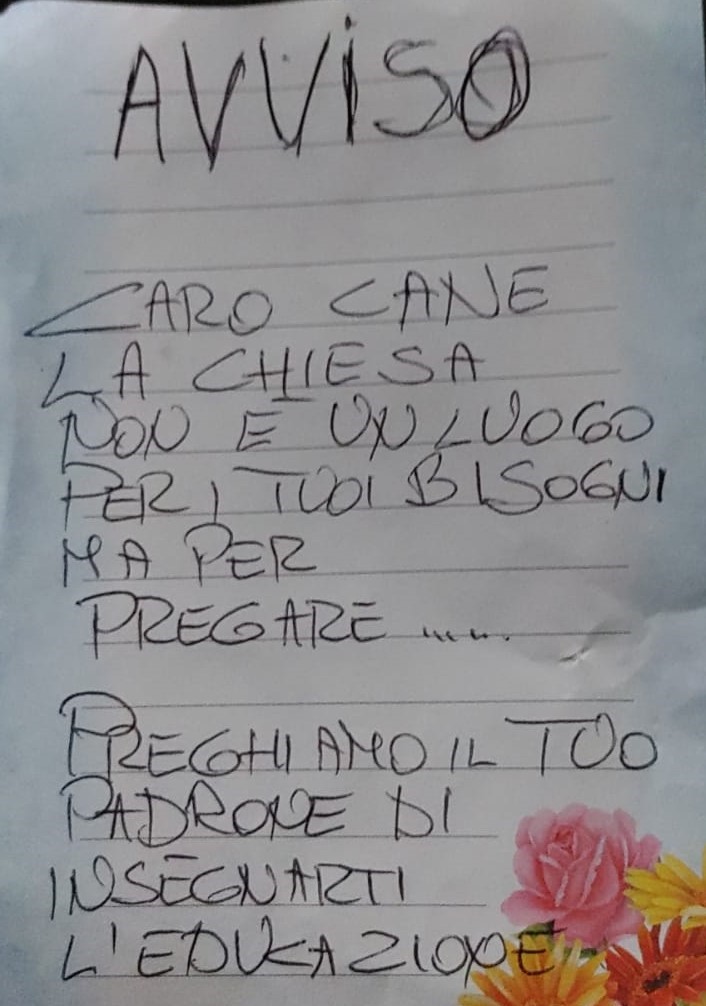 AVVISO
CARO CANE
LA CHIESA
NON E UN LUOGO
PER I TUOI BISOGNI
MA PER
PREGARE ......
PREGHIAMO IL TUO
PADRONE DI
INSEGNARTI
L'EDUKAZIONE